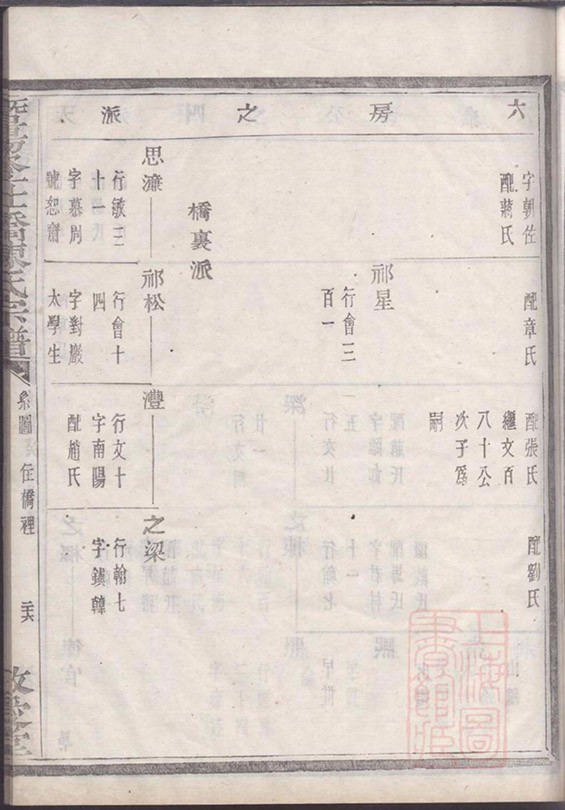 六房之派天
字朝佐
配蔣氏
配章氏
配張氏
繼文百
八十公
次子爲
嗣
配劉氏
祁星
行會三
百一
橋裏派
思濂
行敏三
十一
字慕周
號恕齋
祁松
行會十
四
字對巖
太學生
灃
行文十
字南陽
配趙氏
之梁
行翰七
字鎮韓
橋陳氏宗譜
系圖
住橋裡
二六
敦堂
上海圖書館藏